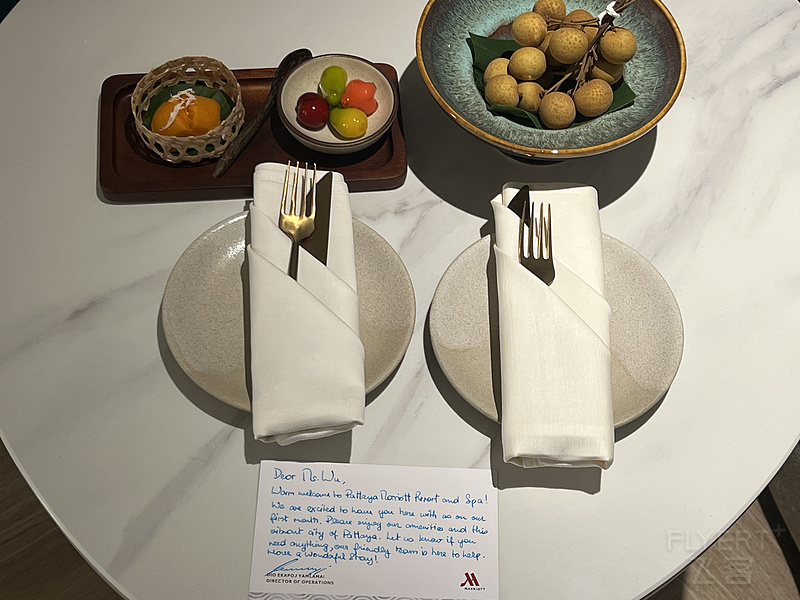 Dear Ms. Wu,
Warm welcome to Pattaya Marriott Resort and Spa!
We are excited to have you here with us on our
first month. Please enjoy our amenities and this
vibrant city of Pattaya. Let us know if you
need anything, our friendly team is here to help.
Have a wonderful stay!
EKAPOJ YAMLAMAI
DIRECTOR OF OPERATIONS
MARRIOTT
FLYERT+